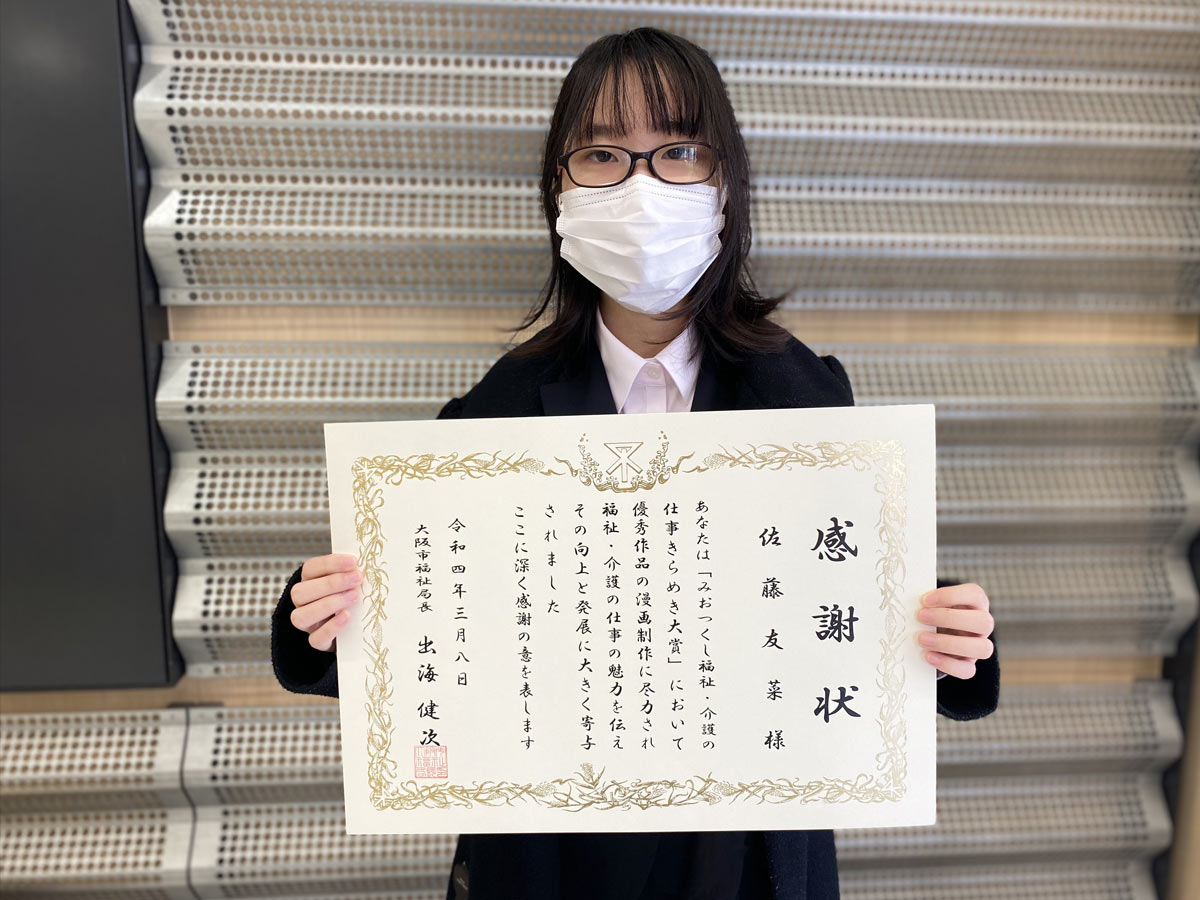 感謝状
佐藤友菜様
あなたは「みおつくし福祉・介護の
仕事きらめき大賞」において
優秀作品の漫画制作に尽力され
福祉・介護の仕事の魅力を伝え
その向上と発展に大きく寄与
されました
ここに深く感謝の意を表します
令和四年三月八日
大阪市福祉局長 出海健次